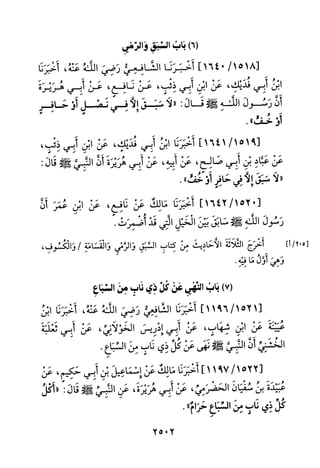 (٦) بَابُ السَّبَقِ وَالرَّمْيِ
[١٦٤٠/١٥١٨] أَخْبَرَنَا الشَّافِعِيُّ رَضِيَ اللَّهُ عَنْهُ، أَخْبَرَنَا
ابْنُ أَبِي فُدَيْكٍ، عَنِ ابْنِ أَبِي ذِئْبٍ، عَنْ نَافِعٍ، عَنْ أَبِي هُرَيْرَةَ
أَنَّ رَسُولَ اللَّهِ ﷺ قَالَ: «لَا سَبَقَ إِلَّا فِي نَصْلٍ أَوْ حَافِرٍ
أَوْ خُفٍّ».
[١٦٤١/١٥١٩] أَخْبَرَنَا ابْنُ أَبِي فُدَيْكٍ، عَنِ ابْنِ أَبِي ذِئْبٍ،
عَنْ عَبَّادِ بْنِ أَبِي صَالِحٍ، عَنْ أَبِيهِ، عَنْ أَبِي هُرَيْرَةَ أَنَّ النَّبِيَّ ﷺ قَالَ:
«لَا سَبَقَ إِلَّا فِي حَافِرٍ أَوْ خُفٍّ».
[١٦٤٢/١٥٢٠] أَخْبَرَنَا مَالِكٌ عَنْ نَافِعٍ، عَنِ ابْنِ عُمَرَ أَنَّ
رَسُولَ اللَّهِ ﷺ سَابَقَ بَيْنَ الْخَيْلِ الَّتِي قَدْ أُضْمِرَتْ.
أَخْرَجَ الثَّلَاثَةَ الْأَحَادِيثَ مِنْ كِتَابِ السَّبَقِ وَالرَّمْيِ وَالْقَسَامَةِ / وَالْكُسُوفِ، [٢٠٥/أ]
وَهِيَ أَوَّلُ مَا فِيهِ.
(٧) بَابُ النَّهْيِ عَنْ كُلِّ ذِي نَابٍ مِنَ السِّبَاعِ
[١١٩٦/١٥٢١] أَخْبَرَنَا الشَّافِعِيُّ رَضِيَ اللَّهُ عَنْهُ، أَخْبَرَنَا ابْنُ
عُيَيْنَةَ عَنِ ابْنِ شِهَابٍ، عَنْ أَبِي إِدْرِيسَ الْخَوْلَانِيِّ، عَنْ أَبِي ثَعْلَبَةَ
الْخُشَنِيِّ أَنَّ النَّبِيَّ ﷺ نَهَى عَنْ كُلِّ ذِي نَابٍ مِنَ السِّبَاعِ.
[١١٩٧/١٥٢٢] أَخْبَرَنَا مَالِكٌ عَنْ إِسْمَاعِيلَ بْنِ أَبِي حَكِيمٍ، عَنْ
عُبَيْدَةَ بْنِ سُفْيَانَ الْحَضْرَمِيِّ، عَنْ أَبِي هُرَيْرَةَ، عَنِ النَّبِيِّ ﷺ قَالَ: «أَكْلُ
كُلِّ ذِي نَابٍ مِنَ السِّبَاعِ حَرَامٌ».
٢٥٠٢